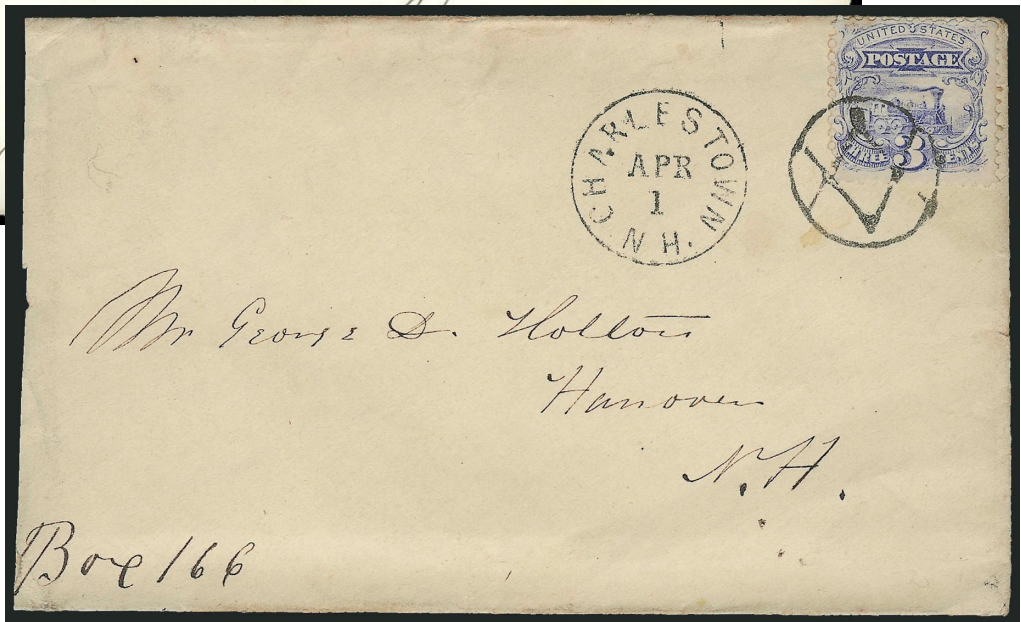 UNITED STATES
POSTAGE
THREE 3 CENTS
CHARLESTOWN
APR
1
N.H.
Mr George D. Holton
Hanover
N.H.
Box 166